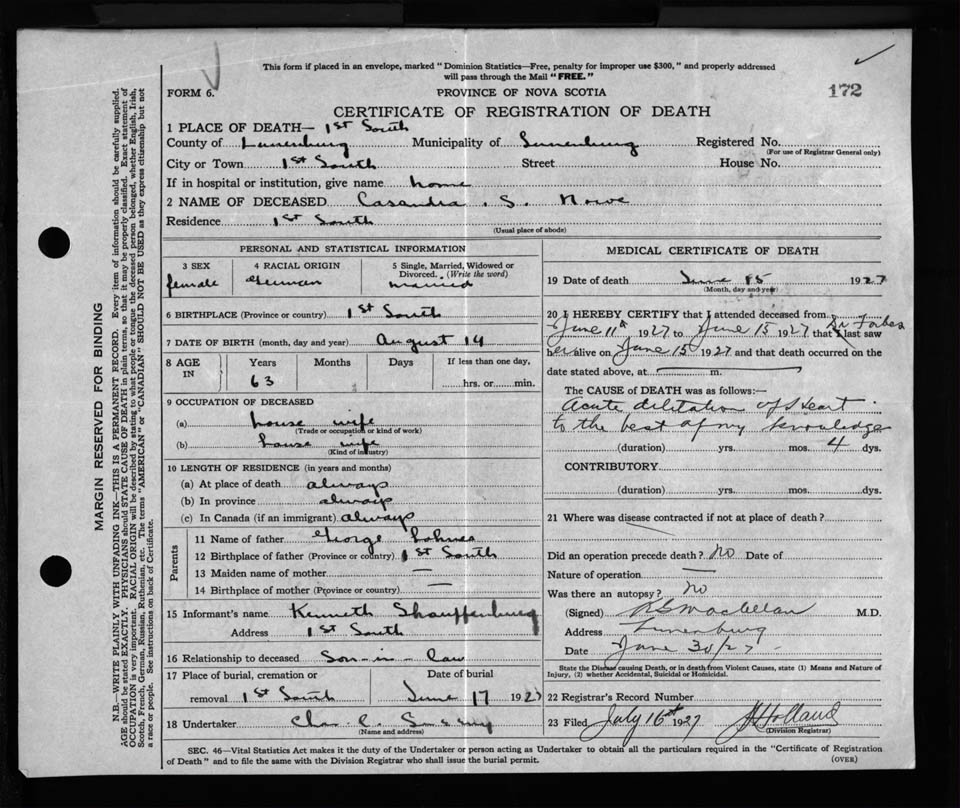 This form if placed in an envelope, marked "Dominion Statistics—Free, penalty for improper use $300," and properly addressed
will pass through the Mail "FREE."
FORM 6.
PROVINCE OF NOVA SCOTIA
172
CERTIFICATE OF REGISTRATION OF DEATH
1 PLACE OF DEATH— 1st South
County of Lunenburg Municipality of Lunenburg Registered No.
(For use of Registrar General only)
City or Town 1st South Street House No.
If in hospital or institution, give name home
2 NAME OF DECEASED Casandra . S. Nowe
Residence 1st South
(Usual place of abode)
PERSONAL AND STATISTICAL INFORMATION
3 SEX
female
4 RACIAL ORIGIN
German
5 Single, Married, Widowed or
Divorced. (Write the word)
married
6 BIRTHPLACE (Province or country) 1st South
7 DATE OF BIRTH (month, day and year) August 14
8 AGE
IN
Years
63
Months
Days
If less than one day,
hrs. or min.
9 OCCUPATION OF DECEASED
(a) house wife
(Trade or occupation or kind of work)
(b) house wife
(Kind of industry)
10 LENGTH OF RESIDENCE (in years and months)
(a) At place of death always
(b) In province always
(c) In Canada (if an immigrant) always
Parents
11 Name of father George Lohnes
12 Birthplace of father (Province or country) 1st South
13 Maiden name of mother —
14 Birthplace of mother (Province or country) —
15 Informant's name Kenneth Shauffenburg
Address 1st South
16 Relationship to deceased Son-in-law
17 Place of burial, cremation or
removal 1st South
Date of burial
June 17 1927
18 Undertaker Chas. C.
(Name and address)
MEDICAL CERTIFICATE OF DEATH
19 Date of death June 15 1927
(Month, day and year)
20 I HEREBY CERTIFY that I attended deceased from
June 11th 1927 to June 15 1927 that I last saw
Dr Forbes
her alive on June 15 1927 and that death occurred on the
date stated above, at m.
The CAUSE of DEATH was as follows:—
Acute dilitation of Heart
to the best of my knowledge
(duration) yrs. mos. 4 dys.
CONTRIBUTORY
(duration) yrs. mos. dys.
21 Where was disease contracted if not at place of death?
Did an operation precede death? No Date of
Nature of operation —
Was there an autopsy? No
(Signed) Maclellan M.D.
Address Lunenburg
Date June 30/27
State the Disease causing Death, or in death from Violent Causes, state (1) Means and Nature of
Injury, (2) whether Accidental, Suicidal or Homicidal.
22 Registrar's Record Number
23 Filed July 16th 1927 Holland
(Division Registrar)
SEC. 46—Vital Statistics Act makes it the duty of the Undertaker or person acting as Undertaker to obtain all the particulars required in the "Certificate of Registration
of Death" and to file the same with the Division Registrar who shall issue the burial permit.
(OVER)
MARGIN RESERVED FOR BINDING
N.B.—WRITE PLAINLY WITH UNFADING INK—THIS IS A PERMANENT RECORD. Every item of information should be carefully supplied.
AGE should be stated EXACTLY. PHYSICIANS should STATE CAUSE OF DEATH in plain terms, so that it may be properly classified. Exact statement of
OCCUPATION is very important. RACIAL ORIGIN will be described by stating to what people or tongue the deceased person belonged, whether English, Irish,
Scotch, French, German, Russian, Ruthenian, etc. The terms "AMERICAN" or "CANADIAN" SHOULD NOT BE USED as they express citizenship but not
a race or people. See instructions on back of Certificate.